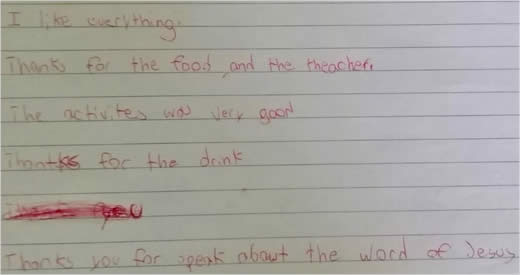 I like everything.
Thanks for the food and the theacher.
The activites was very good
Thantks for the drink
Thanks you for speak about the word of Jesus